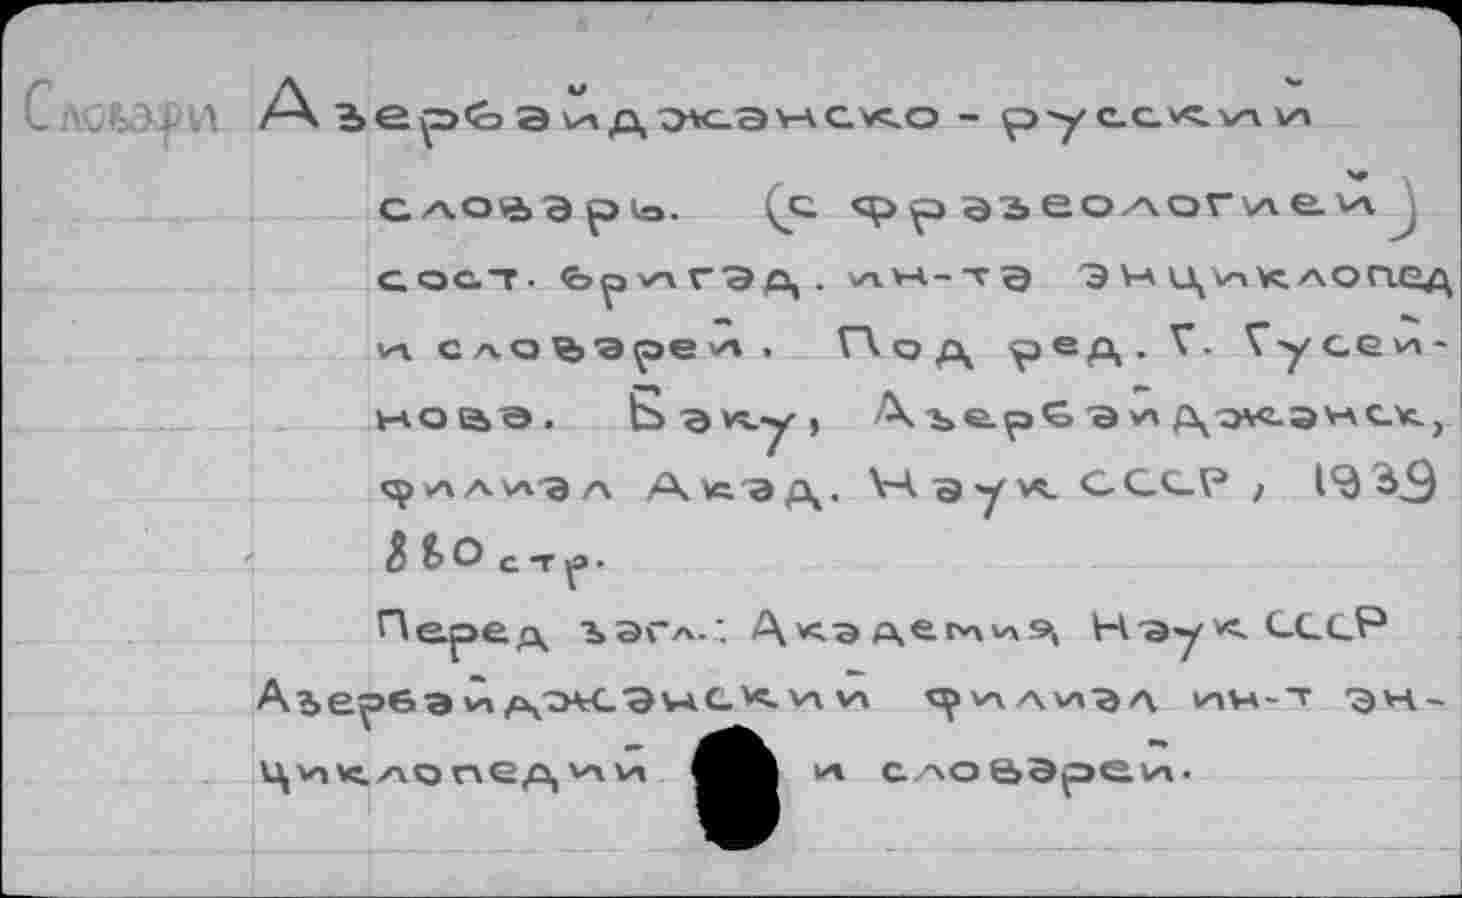 Словари
Азербайджанско - русский
словарь. (с фразеологией)
сост. бригад. ин-та энциклопед
и словарей. Под ред. Г. Гусей-
нова. Баку, Азербайджанск.,
филиал Акад. Наук СССР, 1939
стр.
Перед загл.: Академия Наук СССР
Азербайджанский филиал ин-т эн-
циклопедий и словарей.